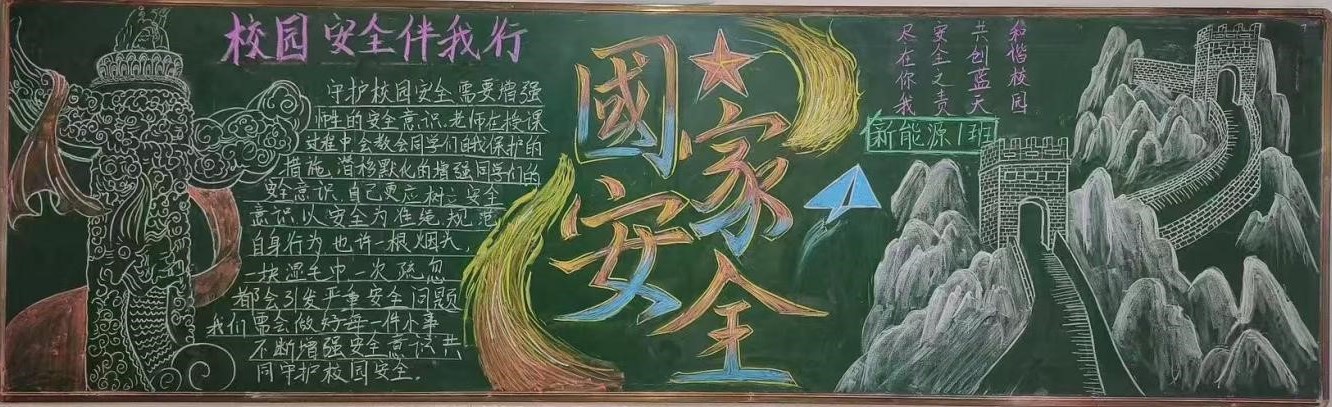 校园安全伴我行
守护校园安全需要增强
师生的安全意识.老师在授课
过程中会教会同学们自我保护的
措施,潜移默化的增强同学们的
安全意识.自己更应树立安全
意识以安全为准绳规范
自身行为也许一根烟头,
一块湿毛巾一次疏忽
都会引发严重安全问题
我们需会做好每一件小事
不断增强安全意识共
同守护校园安全.
國家安全
和谐校园
共创蓝天
安全之责
尽在你我
新能源1班